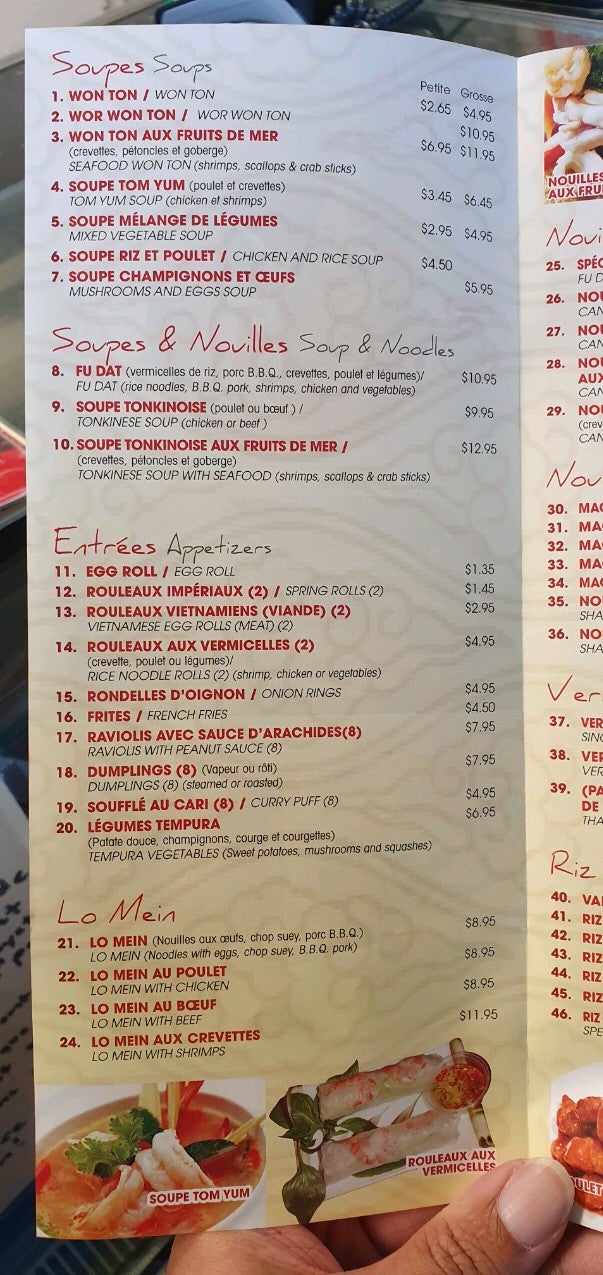 Soupes Soups
Petite Grosse
1. WON TON / WON TON $2.65 $4.95
2. WOR WON TON / WOR WON TON $10.95
3. WON TON AUX FRUITS DE MER $6.95 $11.95
(crevettes, pétoncles et goberge)
SEAFOOD WON TON (shrimps, scallops & crab sticks)
4. SOUPE TOM YUM (poulet et crevettes) $3.45 $6.45
TOM YUM SOUP (chicken et shrimps)
5. SOUPE MÉLANGE DE LÉGUMES $2.95 $4.95
MIXED VEGETABLE SOUP
6. SOUPE RIZ ET POULET / CHICKEN AND RICE SOUP $4.50
7. SOUPE CHAMPIGNONS ET ŒUFS $5.95
MUSHROOMS AND EGGS SOUP
Soupes & Nouilles Soup & Noodles
8. FU DAT (vermicelles de riz, porc B.B.Q., crevettes, poulet et légumes)/ $10.95
FU DAT (rice noodles, B.B.Q. pork, shrimps, chicken and vegetables)
9. SOUPE TONKINOISE (poulet ou bœuf ) / $9.95
TONKINESE SOUP (chicken or beef )
10. SOUPE TONKINOISE AUX FRUITS DE MER / $12.95
(crevettes, pétoncles et goberge)
TONKINESE SOUP WITH SEAFOOD (shrimps, scallops & crab sticks)
Entrées Appetizers
11. EGG ROLL / EGG ROLL $1.35
12. ROULEAUX IMPÉRIAUX (2) / SPRING ROLLS (2) $1.45
13. ROULEAUX VIETNAMIENS (VIANDE) (2) $2.95
VIETNAMESE EGG ROLLS (MEAT) (2)
14. ROULEAUX AUX VERMICELLES (2) $4.95
(crevette, poulet ou légumes)/
RICE NOODLE ROLLS (2) (shrimp, chicken or vegetables)
15. RONDELLES D'OIGNON / ONION RINGS $4.95
16. FRITES / FRENCH FRIES $4.50
17. RAVIOLIS AVEC SAUCE D'ARACHIDES(8) $7.95
RAVIOLIS WITH PEANUT SAUCE (8)
18. DUMPLINGS (8) (Vapeur ou rôti) $7.95
DUMPLINGS (8) (steamed or roasted)
19. SOUFFLÉ AU CARI (8) / CURRY PUFF (8) $4.95
20. LÉGUMES TEMPURA $6.95
(Patate douce, champignons, courge et courgettes)
TEMPURA VEGETABLES (Sweet potatoes, mushrooms and squashes)
Lo Mein
21. LO MEIN (Nouilles aux œufs, chop suey, porc B.B.Q.) $8.95
LO MEIN (Noodles with eggs, chop suey, B.B.Q. pork)
22. LO MEIN AU POULET $8.95
LO MEIN WITH CHICKEN
23. LO MEIN AU BŒUF $8.95
LO MEIN WITH BEEF
24. LO MEIN AUX CREVETTES $11.95
LO MEIN WITH SHRIMPS
SOUPE TOM YUM
ROULEAUX AUX
VERMICELLES
NOUILLES
AUX FRUI
Noui
25. SPÉC
FU D
26. NOU
CAN
27. NOU
CAN
28. NOU
AUX
CAN
29. NOU
(crev
CAN
Nou
30. MAC
31. MA
32. MA
33. MA
34. MA
35. NO
SHA
36. NO
SHA
Ver
37. VER
SING
38. VE
VER
39. (PA
DE
THA
Riz
40. VA
41. RIZ
42. RIZ
43. RIZ
44. RIZ
45. RIZ
46. RIZ
SPE